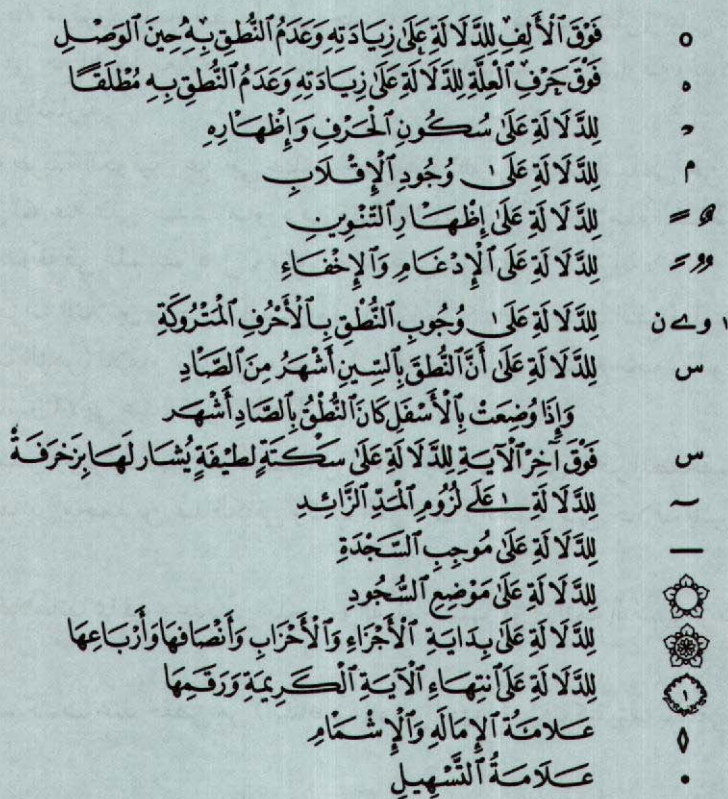 ه فَوْقَ ٱلْأَلِفِ لِلدَّلَالَةِ عَلَىٰ زِيَادَتِهِ وَعَدَمِ ٱلنُّطْقِ بِهِ حِينَ ٱلْوَصْلِ
ه فَوْقَ حَرْفِ ٱلْعِلَّةِ لِلدَّلَالَةِ عَلَىٰ زِيَادَتِهِ وَعَدَمِ ٱلنُّطْقِ بِهِ مُطْلَقًا
لِلدَّلَالَةِ عَلَىٰ سُكُونِ ٱلْحَرْفِ وَإِظْهَارِهِ
م لِلدَّلَالَةِ عَلَىٰ وُجُودِ ٱلْإِقْلَابِ
لِلدَّلَالَةِ عَلَىٰ إِظْهَارِ ٱلتَّنْوِينِ
لِلدَّلَالَةِ عَلَىٰ ٱلْإِدْغَامِ وَٱلْإِخْفَاءِ
ا و ے ن لِلدَّلَالَةِ عَلَىٰ وُجُوبِ ٱلنُّطْقِ بِٱلْأَحْرُفِ ٱلْمَتْرُوكَةِ
س لِلدَّلَالَةِ عَلَىٰ أَنَّ ٱلنُّطْقَ بِٱلسِّينِ أَشْهَرُ مِنَ ٱلصَّادِ
وَإِذَا وُضِعَتْ بِٱلْأَسْفَلِ كَانَ ٱلنُّطْقُ بِٱلصَّادِ أَشْهَر
س فَوْقَ آخِرِ ٱلْآيَةِ لِلدَّلَالَةِ عَلَىٰ سَكْتَةٍ لَطِيفَةٍ يُشَار لَهَا بِزَخْرَفَةٌ
لِلدَّلَالَةِ عَلَىٰ لُزُومِ ٱلْمَدِّ ٱلزَّائِدِ
لِلدَّلَالَةِ عَلَىٰ مُوجِبِ ٱلسَّجْدَةِ
لِلدَّلَالَةِ عَلَىٰ مَوْضِعِ ٱلسُّجُودِ
لِلدَّلَالَةِ عَلَىٰ بِدَايَةِ ٱلْأَجْزَاءِ وَٱلْأَحْزَابِ وَأَنْصَافِهَا وَأَرْبَاعِهَا
١ لِلدَّلَالَةِ عَلَىٰ ٱنتِهَاءِ ٱلْآيَةِ ٱلْكَرِيمَةِ وَرَقَمِهَا
عَلَامَةُ ٱلْإِمَالَةِ وَٱلْإِشْمَامِ
عَلَامَةُ ٱلتَّسْهِيلِ